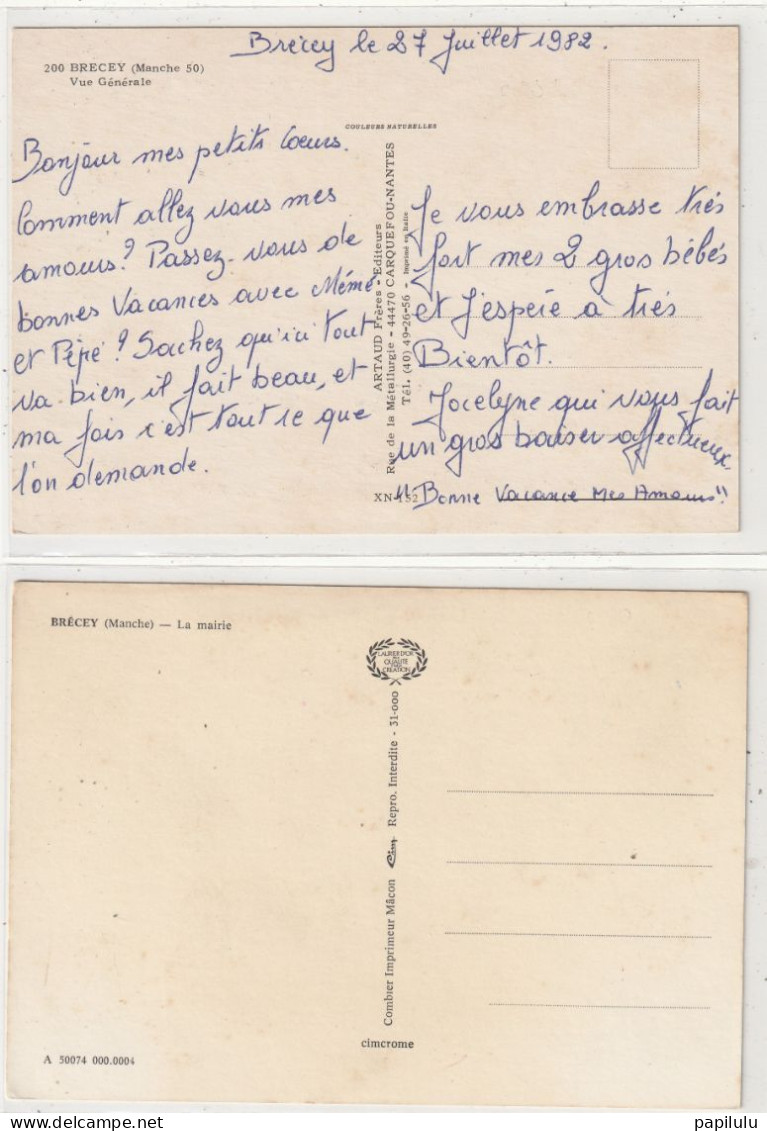 Brécey le 27 Juillet 1982.
200 BRECEY (Manche 50)
Vue Générale
COULEURS NATURELLES
Bonjour mes petits Coeurs.
Comment allez vous mes
amours? Passez-vous de
bonnes Vacances avec Mémé
et Pépé? Sachez qu'ici tout
va bien, il fait beau, et
ma fois c'est tout ce que
l'on demande.
ARTAUD Frères - Editeurs
Rue de la Métallurgie - 44470 CARQUEFOU-NANTES
Tél. (40) 49-26-56 - Imprimé en Italie
XN 152
Je vous embrasse trés
fort mes 2 gros bébés
et J'espére à trés
Bientôt.
Jocelyne qui vous fait
un gros baiser affectueux.
"Bonne Vacance Mes Amours"
BRÉCEY (Manche) — La mairie
LAURIER D'OR
QUALITÉ
CRÉATION
Combier Imprimeur Mâcon Cim Repro. Interdite - 31-000
cimcrome
A 50074 000.0004
papilulu